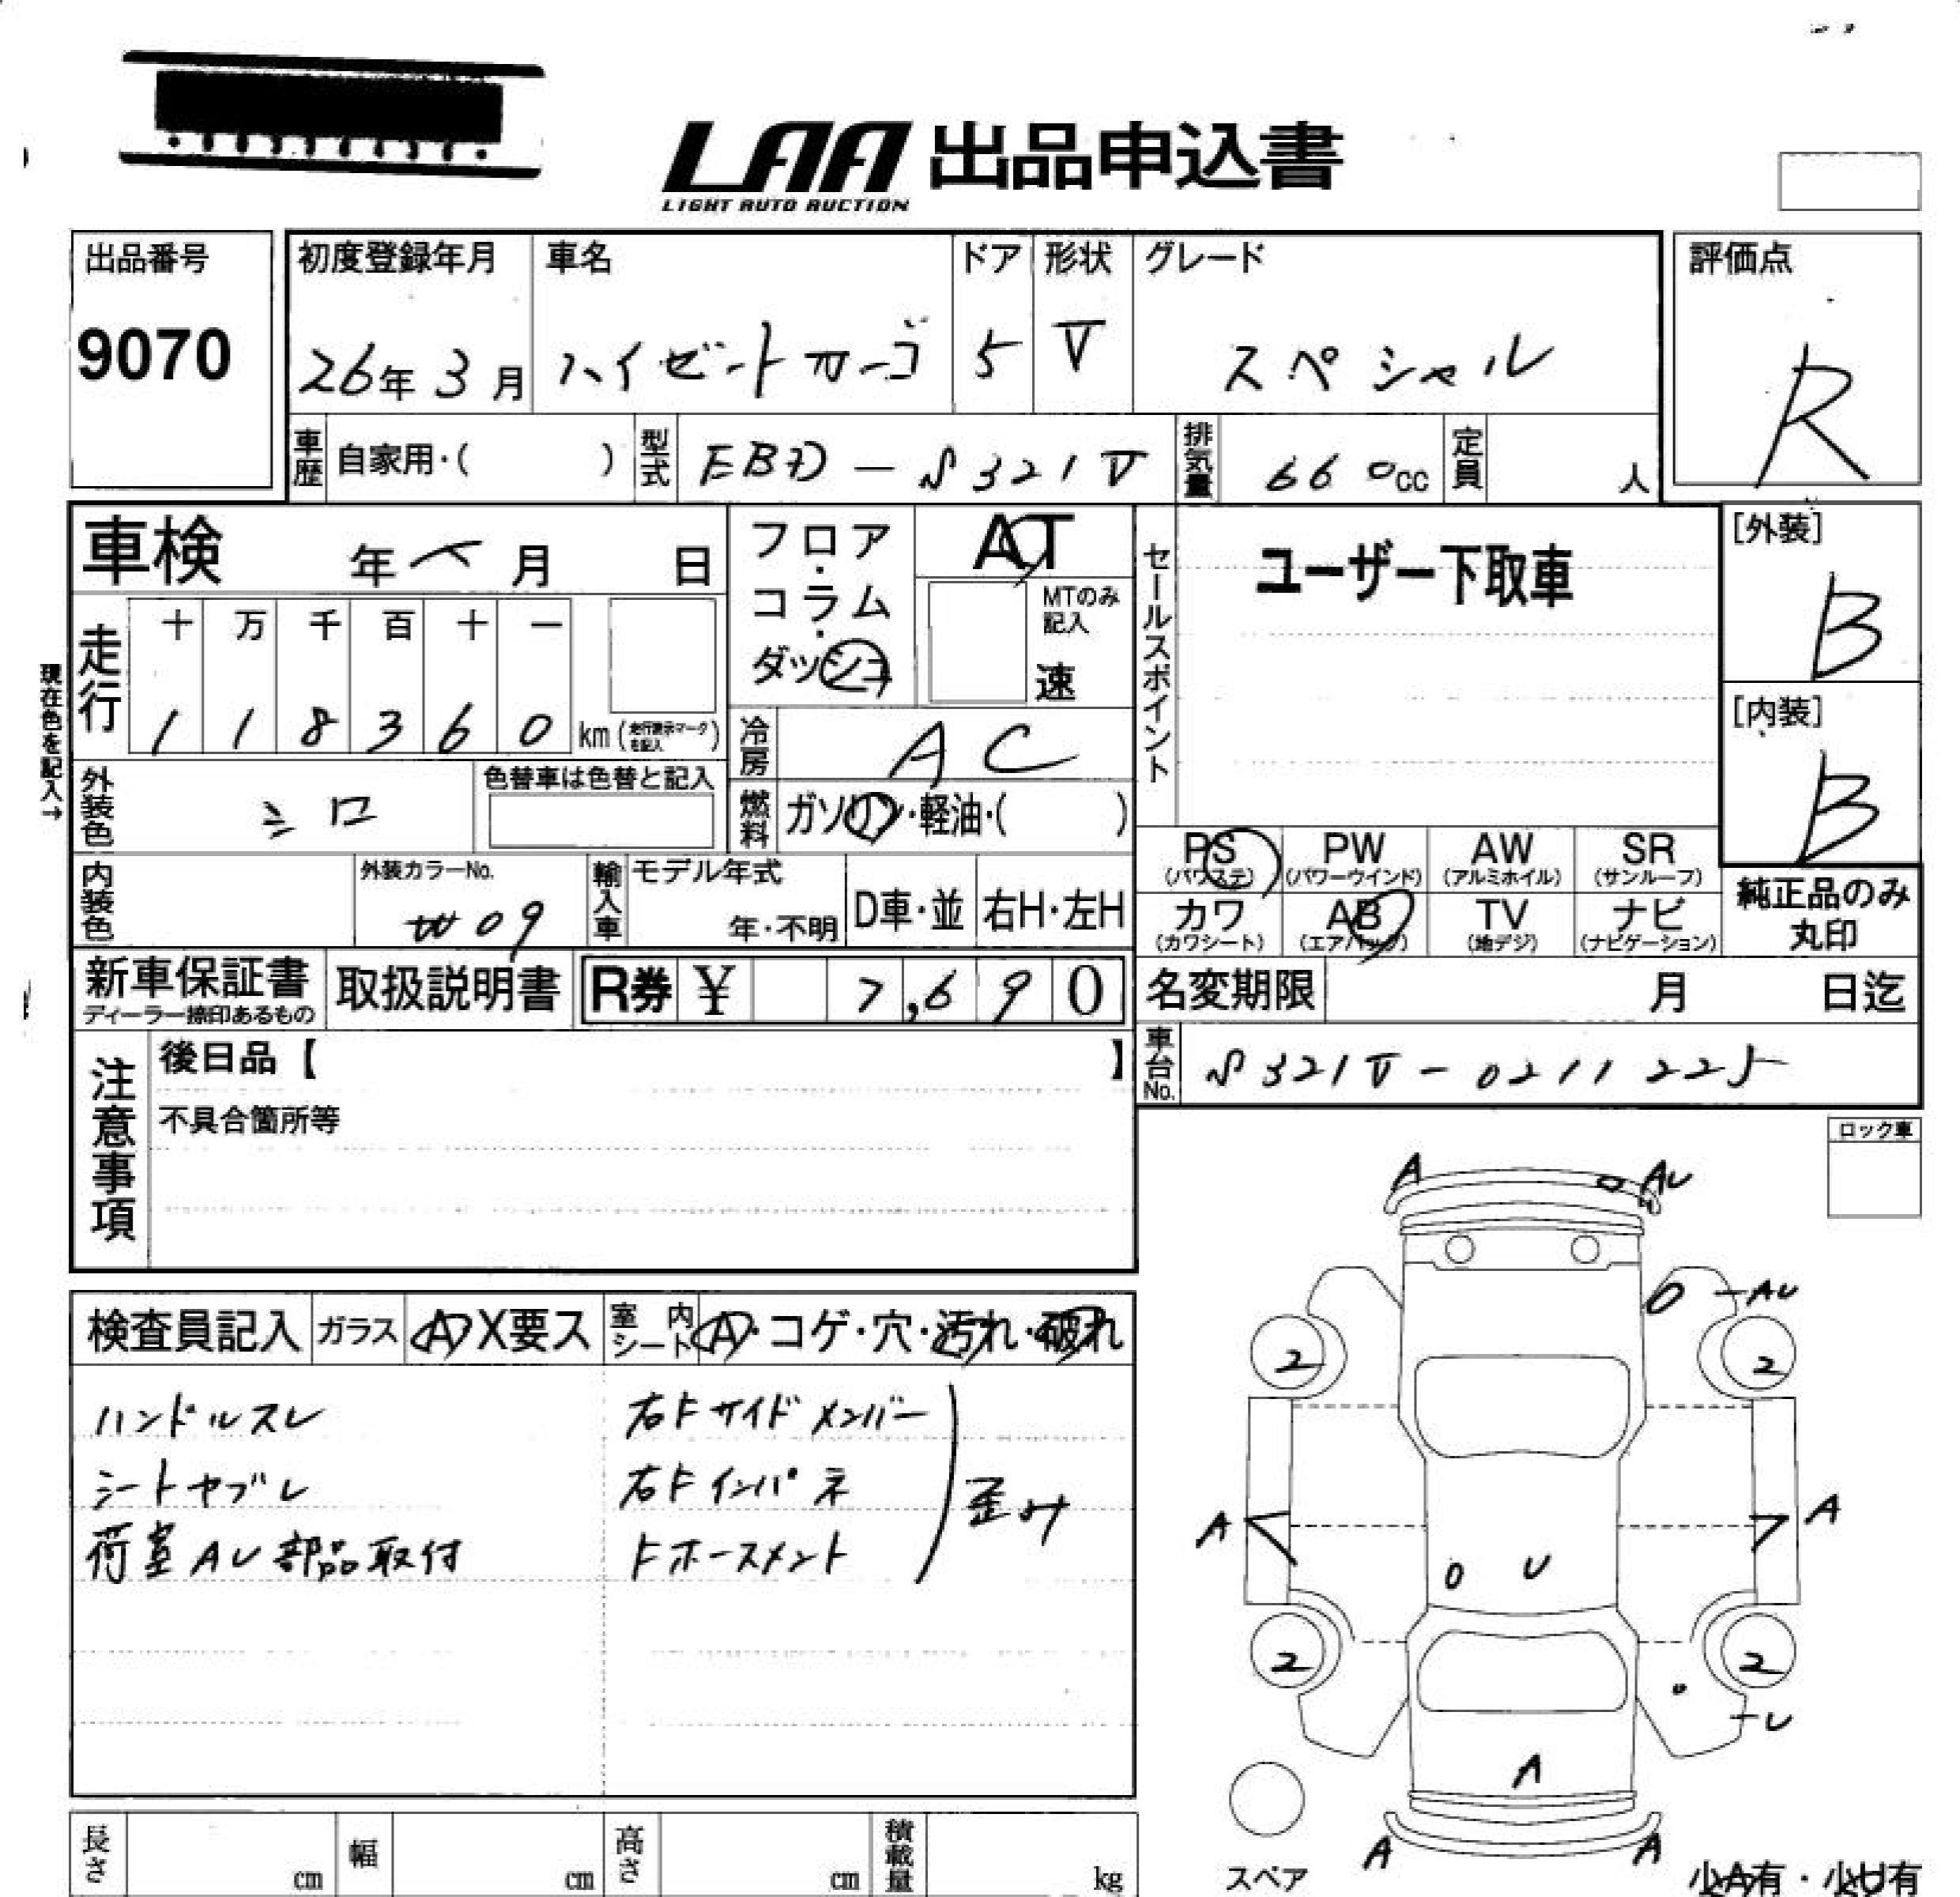 LAA 出品申込書
LIGHT AUTO AUCTION
出品番号
9070
初度登録年月
26年3月
車名
ハイゼットカーゴ
ドア
5
形状
V
グレード
スペシャル
評価点
R
車歴 自家用・( )
型式 EBD-S321V
排気量 660cc
定員 人
車検 年 月 日
フロア・コラム・ダッシュ
AT
MTのみ記入
速
セールスポイント
ユーザー下取車
[外装]
B
[内装]
B
現在色を記入→
走行
十 万 千 百 十 一
1 1 8 3 6 0 km (走行表示マークを記入)
冷房 AC
外装色 シロ
色替車は色替と記入
燃料 ガソリン・軽油・( )
内装色
外装カラーNo.
W09
輸入車
モデル年式
年・不明
D車・並
右H・左H
PS (パワステ)
PW (パワーウインド)
AW (アルミホイル)
SR (サンルーフ)
カワ (カワシート)
AB (エアバック)
TV (地デジ)
ナビ (ナビゲーション)
純正品のみ
丸印
新車保証書
ディーラー捺印あるもの
取扱説明書
R券 ¥ 7,690
名変期限 月 日迄
車台No. S321V-0211225
注意事項
後日品【 】
不具合箇所等
ロック車
検査員記入 ガラス A X要ス
室内シート A・コゲ・穴・汚れ・破れ
ハンドルスレ
シートヤブレ
荷室AU部品取付
右Fサイドメンバー
右Fインパネ
Fホースメント
歪み
A
AU
AU
2
2
A
A
U
2
2
U
A
A
A
スペア
少A有・少U有
長さ cm
幅 cm
高さ cm
積載量 kg